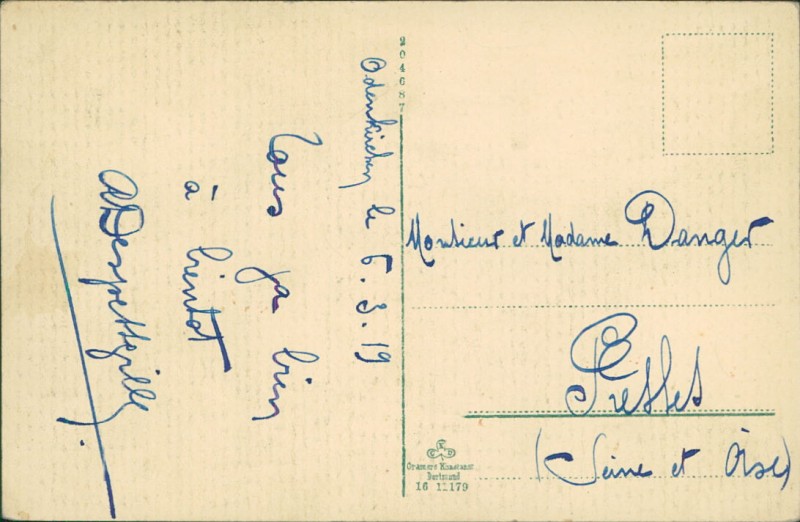 Odenkirchen le 6.3.19
Tous ça bien
à bientot
ADespettoville
204687
Monsieur et Madame Danger
Presles
(Seine et Oise)
Cramers Kunstanst.
Dortmund
16 11179